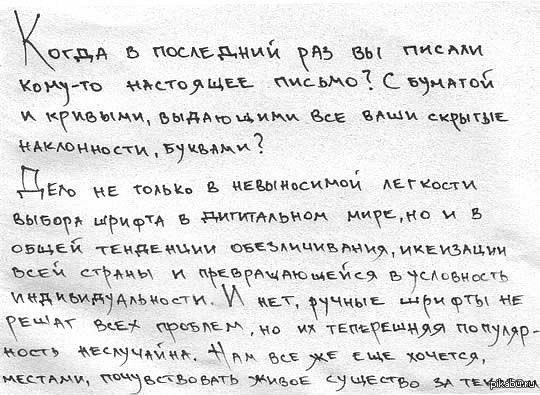 Когда в последний раз вы писали
кому-то настоящее письмо? С бумагой
и кривыми, выдающими все ваши скрытые
наклонности, буквами?
Дело не только в невыносимой легкости
выбора шрифта в дигитальном мире, но и в
общей тенденции обезличивания, икеизации
всей страны и превращающейся в условность
индивидуальности. И нет, ручные шрифты не
решат всех проблем, но их теперешняя популяр-
ность неслучайна. Нам все же еще хочется,
местами, почувствовать живое существо за
pikabu.ru